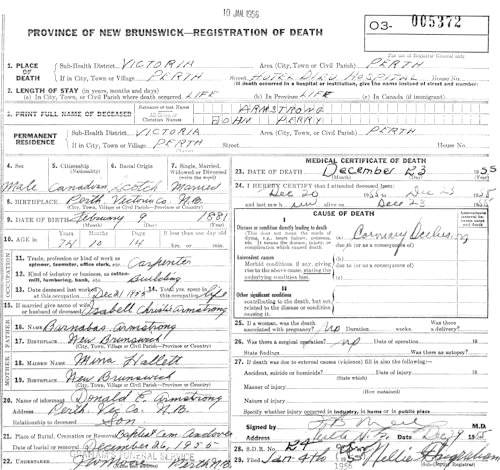 10 JAN 1956
PROVINCE OF NEW BRUNSWICK—REGISTRATION OF DEATH
03- 005372
For use of Registrar General only
1. PLACE OF DEATH
Sub-Health District VICTORIA Area (City, Town, or Civil Parish) PERTH
If in City, Town or Village PERTH Street HOTEL DIEU HOSPITAL House No.
(If death occurred in a hospital or institution, give the name instead of street and number)
2. LENGTH OF STAY (in years, months and days)
(a) In City, Town, or Civil Parish where death occurred LIFE (b) In Province LIFE (c) In Canada (if immigrant)
3. PRINT FULL NAME OF DECEASED
Surname or last Name ARMSTRONG
All Given or Christian Names JOHN PERRY
PERMANENT RESIDENCE
Sub-Health District VICTORIA Area (City, Town, or Civil Parish) PERTH
If in City, Town or Village PERTH Street House No.
4. Sex Male
5. Citizenship (Nationality) Canadian
6. Racial Origin Scotch
7. Single, Married, Widowed or Divorced (write the word) Married
8. BIRTHPLACE Perth, Victoria Co. N.B.
(City, Town, Village or Civil Parish—Province or Country)
9. DATE OF BIRTH February 9 1881
10. AGE in 74 10 14 If less than one day old hr. or min.
OCCUPATION
11. Trade, profession or kind of work as spinner, teamster, office clerk, etc. Carpenter
12. Kind of industry or business, as cotton-mill, lumbering, bank, etc. Building
13. Date deceased last worked at this occupation 14. Total yrs. spent in this occupation life
15. If married give name of wife or husband of deceased
FATHER
16. Name Barnabas Armstrong
17. Birthplace New Brunswick
(City, Town, Village or Civil Parish—Province or Country)
MOTHER
18. Maiden Name Mina Hallett
19. Birthplace New Brunswick
(City, Town, Village or Civil Parish—Province or Country)
20. Name of informant Donald E. Armstrong
Address Perth, Vic Co. N.B.
Relationship to deceased Son
21. Place of Burial, Cremation or Removal Baptist Cem Andover
Date of burial or removal December 26, 1955
22.
MEDICAL CERTIFICATE OF DEATH
23. DATE OF DEATH December 23 1955
24. I HEREBY CERTIFY that I attended deceased from
Dec 20 to Dec 23 1955
and last saw on Dec 23 1955
CAUSE OF DEATH
Approximate interval between onset and death
I
Disease or condition directly leading to death
This does not mean the mode of dying, e.g., heart failure, asthenia, etc. It means the disease, injury, or complication which caused death
(a)
due to (or as a consequence of)
Antecedent causes
Morbid conditions, if any, giving rise to the above cause, stating the underlying condition last.
(b)
due to (or as a consequence of)
(c)
II
Other significant conditions
contributing to the death, but not related to the disease or condition causing it.
25. If a woman, was the death associated with pregnancy? no Duration weeks. a delivery?
26. Was there a surgical operation? no Date of operation 19
State findings Was there an autopsy?
27. If death was due to external causes (violence) fill in also the following:—
Accident, suicide or homicide? Date of injury 19
(State which)
Manner of injury
(How sustained)
Nature of injury
Specify whether injury occurred in industry, in home or in public place
Signed by M.D.
Address Date Dec 29 1955
28. S.D.R. No. 24
29. Filed Jan 4th 1956 Nellie